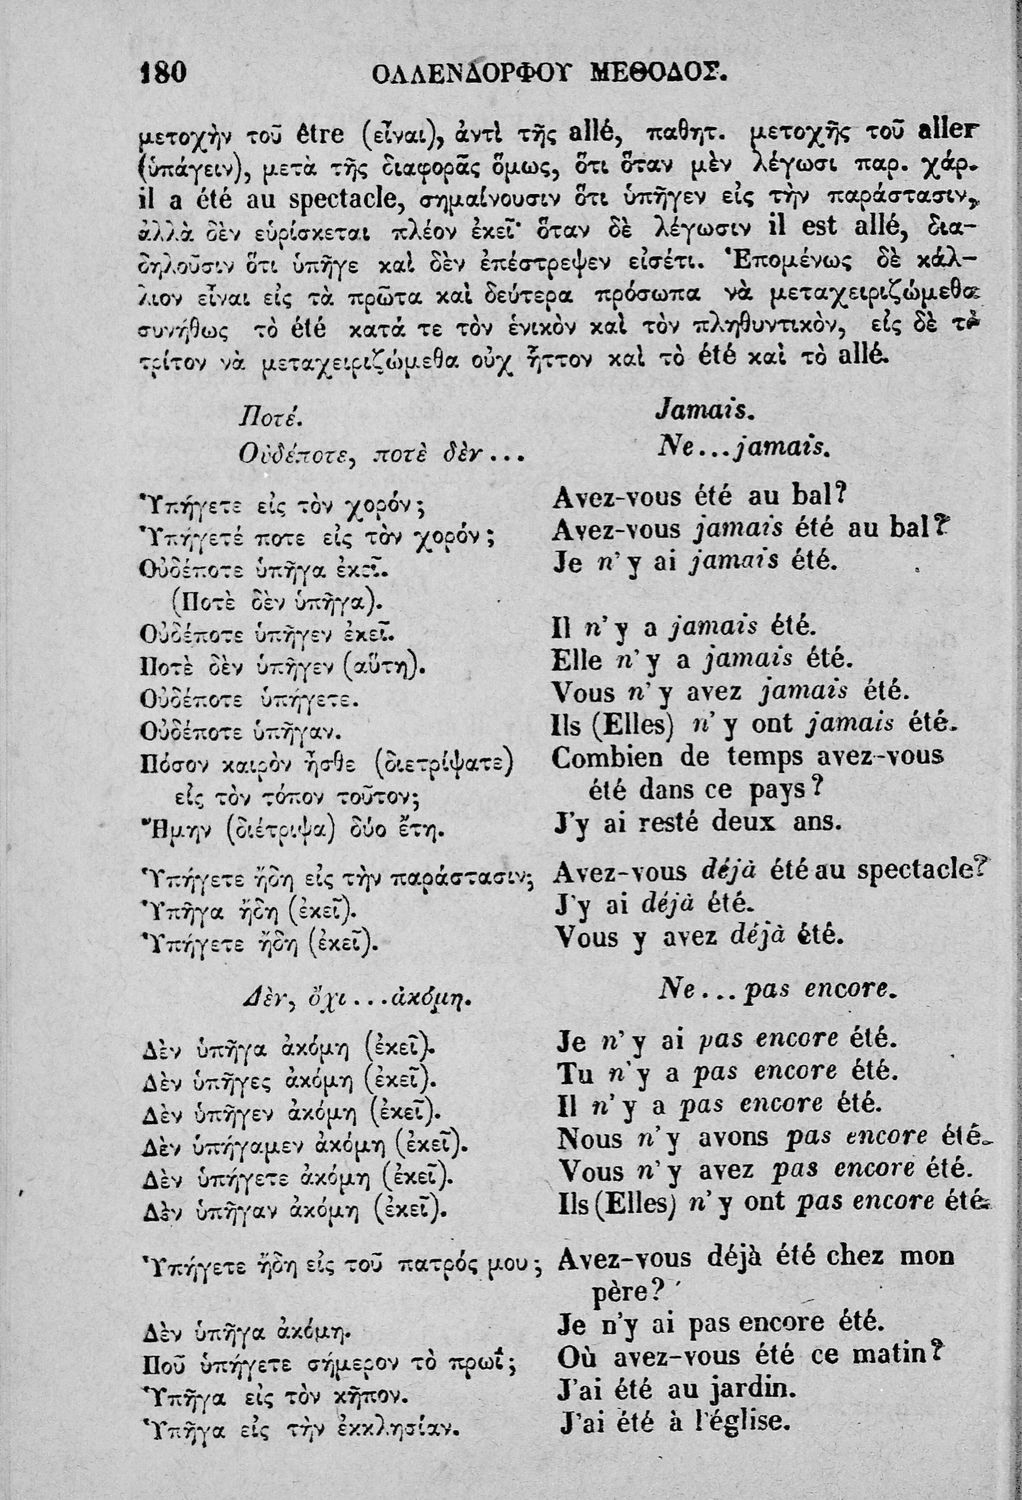 180 ΟΛΛΕΝΔΟΡΦΟΥ ΜΕΘΟΔΟΣ.
μετοχὴν τοῦ être (εἶναι), ἀντὶ τῆς allé, παθητ. μετοχῆς τοῦ aller
(ὑπάγειν), μετὰ τῆς διαφορᾶς ὅμως, ὅτι ὅταν μὲν λέγωσι παρ. χάρ.
il a été au spectacle, σημαίνουσιν ὅτι ὑπῆγεν εἰς τὴν παράστασιν,
ἀλλὰ δὲν εὑρίσκεται πλέον ἐκεῖ· ὅταν δὲ λέγωσιν il est allé, δια-
δηλοῦσιν ὅτι ὑπῆγε καὶ δὲν ἐπέστρεψεν εἰσέτι. Ἑπομένως δὲ κάλ-
λιον εἶναι εἰς τὰ πρῶτα καὶ δεύτερα πρόσωπα νὰ μεταχειριζώμεθα
συνήθως τὸ été κατά τε τὸν ἑνικὸν καὶ τὸν πληθυντικὸν, εἰς δὲ τὸ
τρίτον νὰ μεταχειριζώμεθα οὐχ ἧττον καὶ τὸ été καὶ τὸ allé.
Ποτέ. Jamais.
Οὐδέποτε, ποτὲ δὲν... Ne...jamais.
Ὑπήγετε εἰς τὸν χορόν; Avez-vous été au bal?
Ὑπήγετέ ποτε εἰς τὸν χορόν; Avez-vous jamais été au bal?
Οὐδέποτε ὑπῆγα ἐκεῖ. Je n'y ai jamais été.
(Ποτὲ δὲν ὑπῆγα).
Οὐδέποτε ὑπῆγεν ἐκεῖ. Il n'y a jamais été.
Ποτὲ δὲν ὑπῆγεν (αὕτη). Elle n'y a jamais été.
Οὐδέποτε ὑπήγετε. Vous n'y avez jamais été.
Οὐδέποτε ὑπῆγαν. Ils (Elles) n'y ont jamais été.
Πόσον καιρὸν ἦσθε (διετρίψατε) Combien de temps avez-vous
εἰς τὸν τόπον τοῦτον; été dans ce pays?
Ἤμην (διέτριψα) δύο ἔτη. J'y ai resté deux ans.
Ὑπήγετε ἤδη εἰς τὴν παράστασιν; Avez-vous déjà été au spectacle?
Ὑπῆγα ἤδη (ἐκεῖ). J'y ai déjà été.
Ὑπήγετε ἤδη (ἐκεῖ). Vous y avez déjà été.
Δὲν, ὄχι...ἀκόμη. Ne...pas encore.
Δὲν ὑπῆγα ἀκόμη (ἐκεῖ). Je n'y ai pas encore été.
Δὲν ὑπῆγες ἀκόμη (ἐκεῖ). Tu n'y a pas encore été.
Δὲν ὑπῆγεν ἀκόμη (ἐκεῖ). Il n'y a pas encore été.
Δὲν ὑπήγαμεν ἀκόμη (ἐκεῖ). Nous n'y avons pas encore été.
Δὲν ὑπήγετε ἀκόμη (ἐκεῖ). Vous n'y avez pas encore été.
Δὲν ὑπῆγαν ἀκόμη (ἐκεῖ). Ils (Elles) n'y ont pas encore été.
Ὑπήγετε ἤδη εἰς τοῦ πατρός μου; Avez-vous déjà été chez mon
père?
Δὲν ὑπῆγα ἀκόμη. Je n'y ai pas encore été.
Ποῦ ὑπήγετε σήμερον τὸ πρωΐ; Où avez-vous été ce matin?
Ὑπῆγα εἰς τὸν κῆπον. J'ai été au jardin.
Ὑπῆγα εἰς τὴν ἐκκλησίαν. J'ai été à l'église.